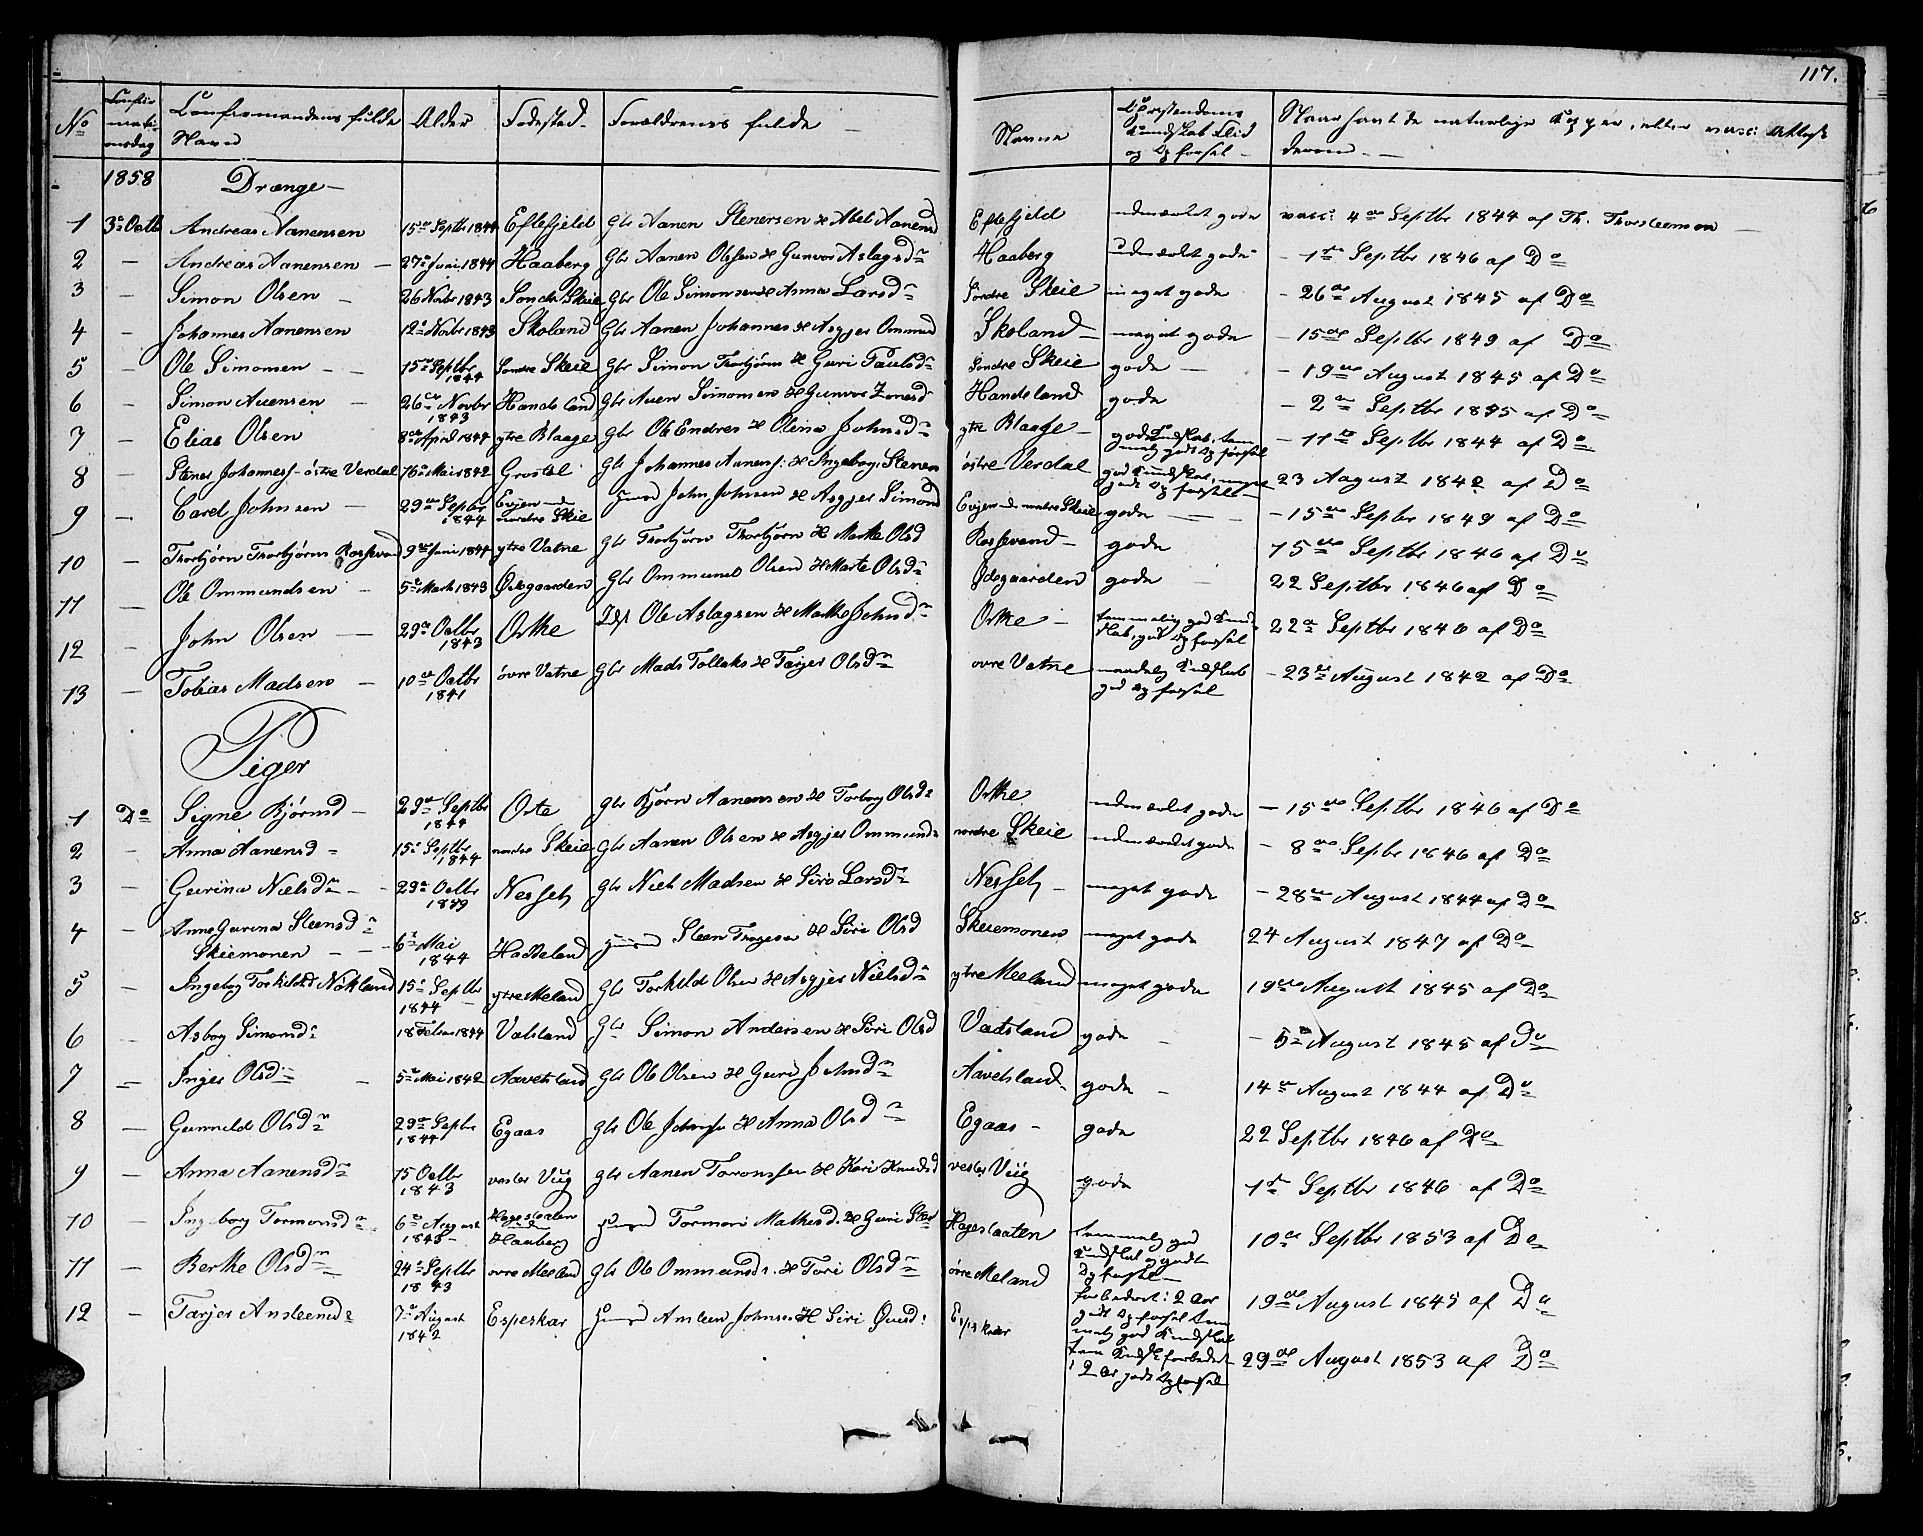 117.
No Confirmationsdag Confirmandens fulde Navn Alder Fødested Forældrenes fulde Navne Christendoms Kundskab Flid og Opførsel Naar havt de naturlige Kopper, eller vacc: Attest derom
1858 Drænge
1 3die Octb Andreas Aanensen 15de Septbr 1844 Eftefjeld Gbr Aanen Stenersen & Abel Aanensd Eftefjeld udmærket gode vacc: 4de Septbr 1844 af Th. Thorsteensen
2 — Andreas Aanensen 27de Juni 1844 Haaberg Gbr Aanen Olsen & Gunvor Aslagsdr Haaberg udmærket gode - 1ste Septbr 1846 af Do
3 — Simon Olsen 26 Novbr 1843 Søndre Skeie Gbr Ole Simonsen & Anna Larsdr Søndre Skeie meget gode - 26de August 1845 af Do
4 — Johannes Aanensen 12te Novbr 1843 Skoland Gbr Aanen Johannes & Asgjer Ommund Skoland meget gode - 15de Septbr 1849 af Do
5 — Ole Simonsen 15de Septbr 1844 Søndre Skeie Gbr Simon Torbjørns & Guri Paulsdr Søndre Skeie gode - 19de August 1845 af Do
6 — Simon Auensen 26de Novbr 1843 Handeland Gbr Auen Simonsen & Gunvor Handeland gode - 2den Septbr 1845 af Do
7 — Elias Olsen 8de April 1844 ytre Blaage Gbr Ole Endres & Olena Johnsdr ytre Blaage god Kundskab, tem̄elig godt Opførsel - 11te Septbr 1844 af Do
8 Stener Johanness. østre Verdal 16de Mai 1842 Grostøl Gbr Johannes Aanens. & Ingeborg Steners østre Verdal god Kundskab, meget gode Opførsel 23 August 1842 af Do
9 — Carel Johnsen 29de Septbr 1844 Evjen under nordre Skeie John Johnsen & Asgjer Simonsd Evjen u. nordre Skeie gode - 15de Septbr 1849 af Do
10 — Thorbjørn Thorbjørns Rossevand 9de Juni 1844 ytre Vatne Gbr Thorbjørn Thorbjørn & Marthe Olsd Rossevand gode 15de Septbr 1846 af Do
11 — Ole Ommundsen 5te Marts 1843 Ødegaarden Gbr Ommund Olsen & Marte Olsdr Ødegaarden gode 22 Septbr 1846 af Do
12 — John Olsen 29de Octbr 1843 Orthe Ole Aslagsen & Marthe Johnsdr Orthe tem̄elig god Kundskab, god Opførsel 22de Septbr 1846 af Do
13 — Tobias Madsen 10de Octbr 1841 övre Vatne Gbr Mads Tollaks & Tarjer Olsdr övre Vatne maadelig Kundskab god Opførsel - 23de August 1842 af Do
Piger
1 Do Signe Bjørnsd 29de Septbr 1844 Orte Gbr Bjørn Aanensen & Torborg Olsdr Orthe udmærket gode - 15de Septbr 1846 af Do
2 — Anna Aanensd 15de Septbr 1844 nordre Skeie Gbr Aanen Olsen & Asgjer Ommundsd nordre Skeie udmærket gode - 8de Septbr 1846 af Do
3 — Gurina Nielsdr 29de Octbr Nesset Gbr Niels Madsen & Siri Larsdr Nesset meget gode - 28de August 1844 af Do
4 — Anne Gurina Steensdr Skiemonen 6te Mai 1844 Hadteland Steen Tragesen & Siri Olsd Skeiemonen meget gode 24 August 1847 af Do
5 — Ingeborg Torkildsd Nökland 15de Septbr 1844 ytre Meland Gbr Torkild Olsen & Asgjer Nielsdr ytre Meeland meget gode 19de August 1845 af Do
6 — Asborg Simonsdr 18 Februar 1844 Valsland Gbr Simon Andersen & Siri Olsd Vadsland gode - 5te August 1845 af Do
7 — Inger Olsdr 5te Mai 1842 Aavetsland Gbr Ole Olsen & Guri Johnsdr Aavetsland gode 14de August 1844 af Do
8 — Gunnild Olsdr 29de Septbr 1844 Egaas Gbr Ole Johnsen & Anna Olsdr Egaas gode 22 Septbr 1846 af Do
9 — Anna Aanensdr 15 Octbr 1843 vester Viig Gbr Aanen Torronssen & Kari Knudsd vester Viig gode 1ste Septbr 1846 af Do
10 — Ingeborg Tormonsdr 6te August 1843 Hagestaaten Haaberg Tormon Mathesd. & Guri Hagestaaten tem̄elig god Kundskab og godt Opførsel 10de Septbr 1853 af Do
11 — Berthe Olsdr 24de Septbr 1843 ovre Meeland Gbr Ole Ommunds. & Tori Olsdr övre Meland forbedret i 2 Aar godt Opførsel tem̄elig god Kundskab 19de August 1845 af Do
12 — Tarjer Ansteensdr 7de August 1842 Espeskar Ansteen Johnsen & Siri Espeskar tem Kundsk forbedret i 2 Aar godt Opførsel 29de August 1853 af Do